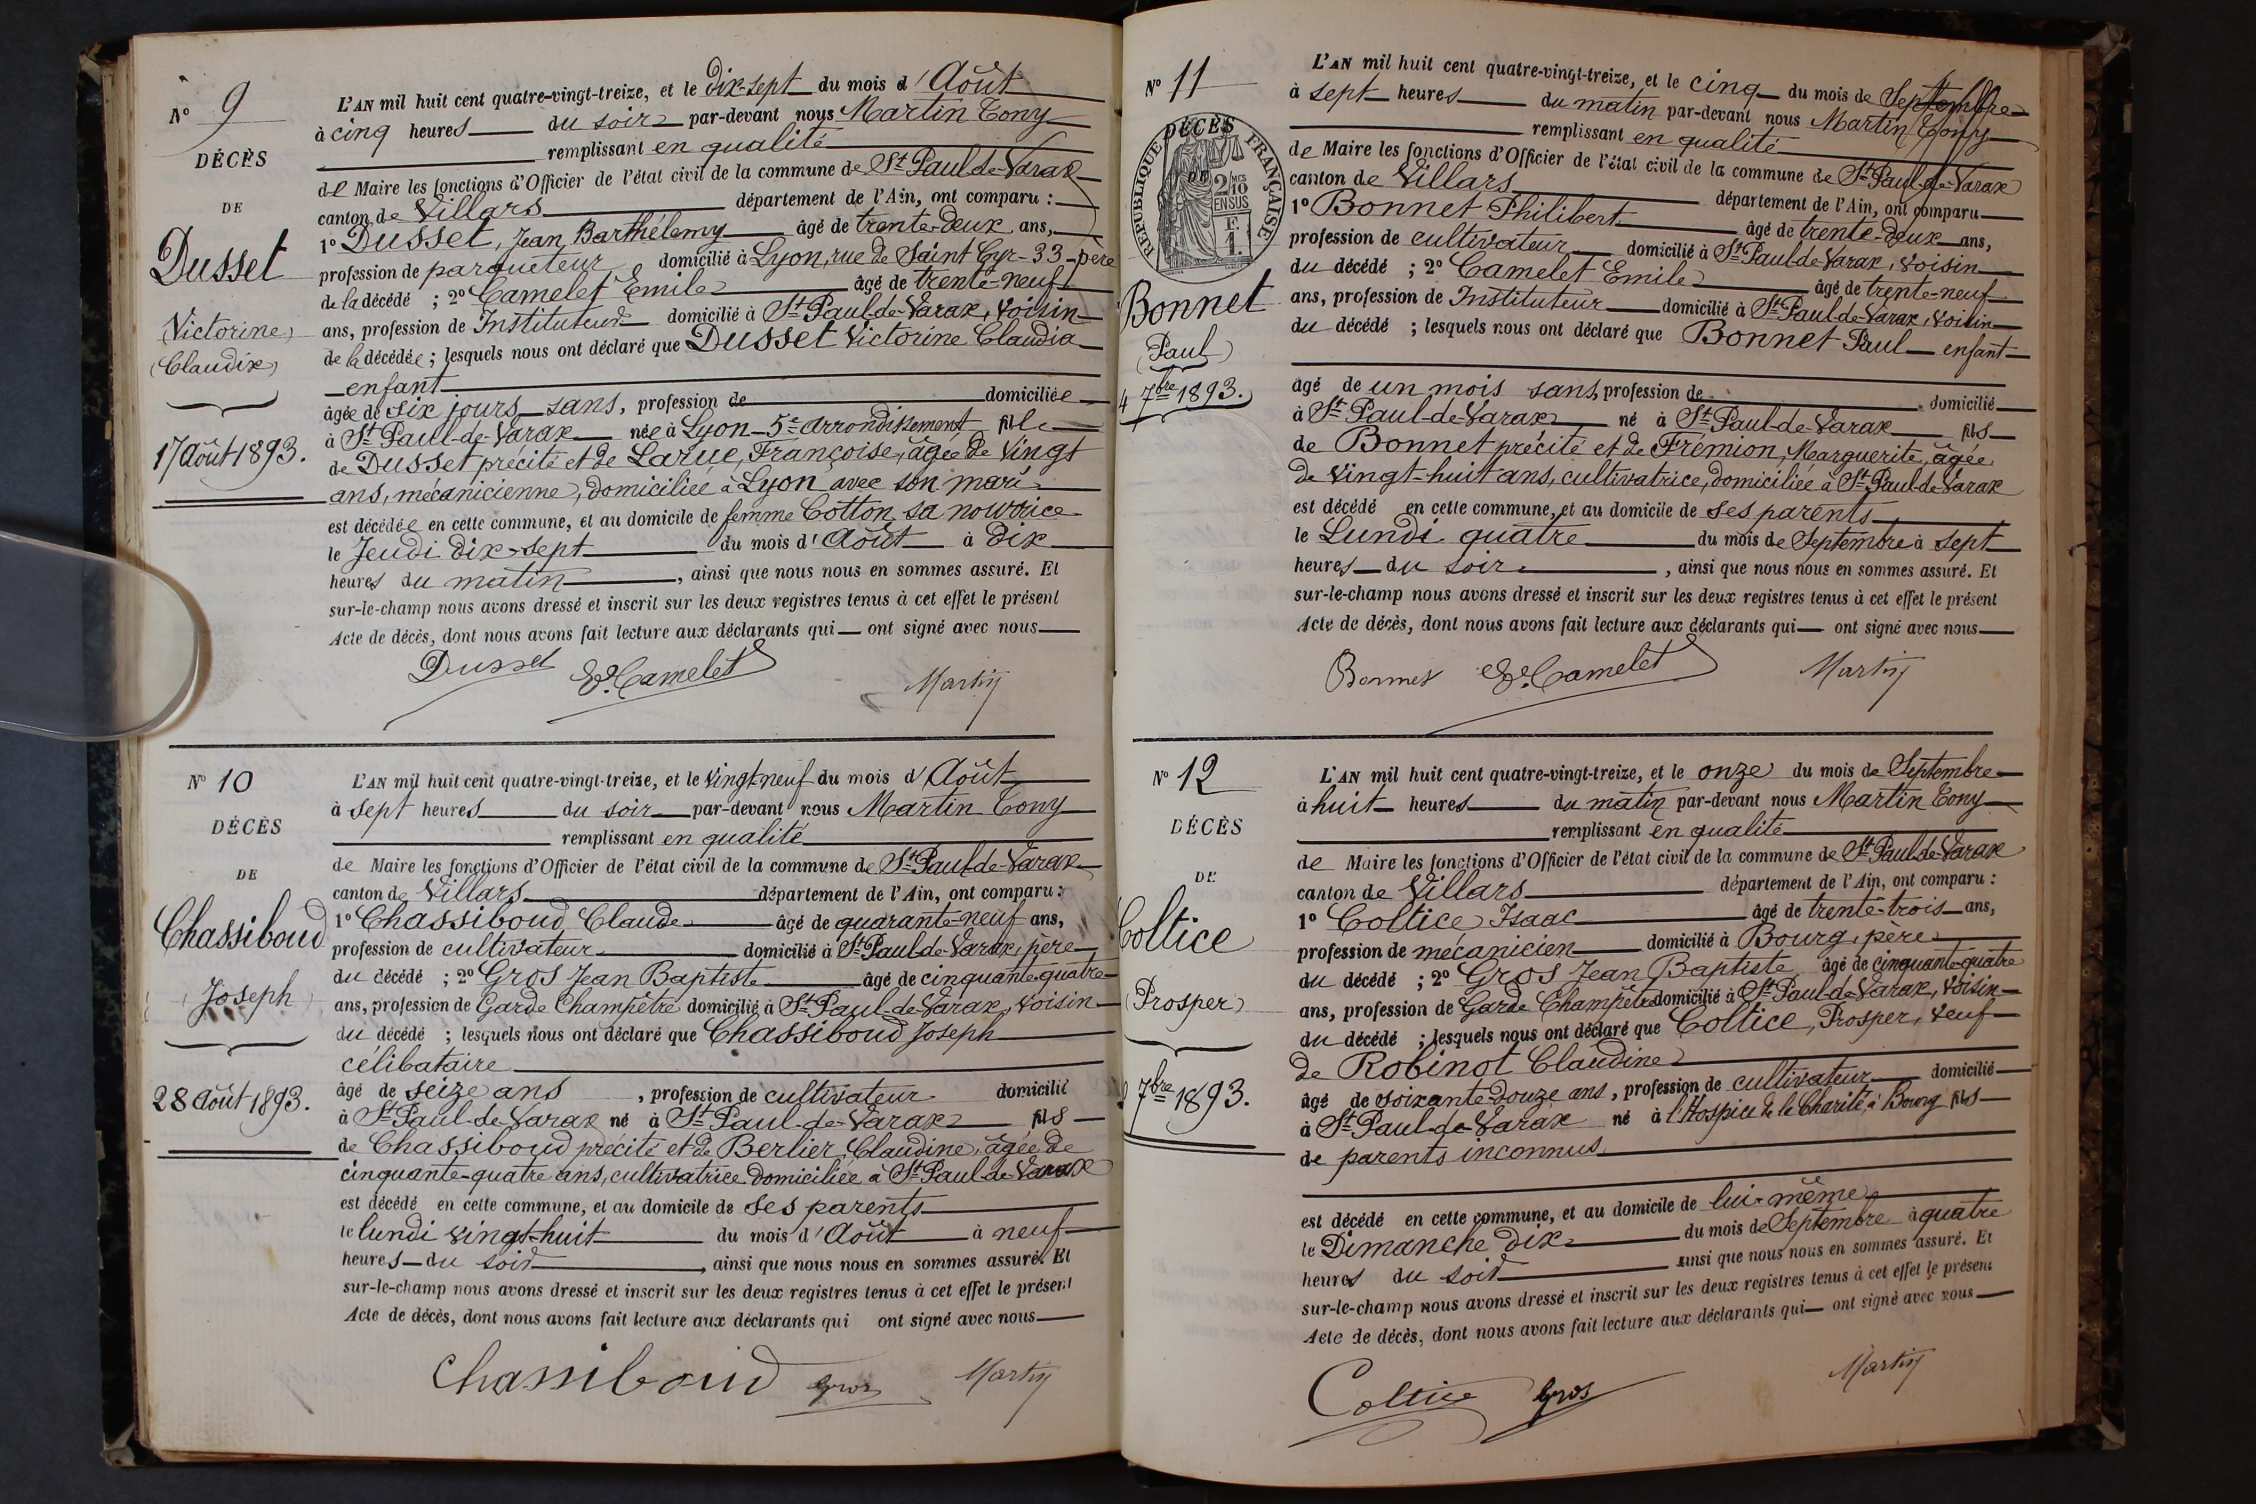 N° 9
DÉCÈS
DE
Dusset
(Victorine)
(Claudia)
17 Août 1893.
L'AN mil huit cent quatre-vingt-treize, et le dix-sept du mois d'Août
à cinq heures du soir par-devant nous Martin Tony
remplissant en qualité
de Maire les fonctions d'Officier de l'état civil de la commune de St Paul-de-Varax
canton de Villars département de l'Ain, ont comparu :
1° Dusset, Jean Barthélemy âgé de trente-deux ans,
profession de parqueteur domicilié à Lyon, rue de Saint Cyr-33-père
de la décédé ; 2° Camelet Emile âgé de trente-neuf
ans, profession de Instituteur domicilié à St Paul-de-Varax, voisin
de la décédée ; lesquels nous ont déclaré que Dusset Victorine Claudia
enfant
âgée de six jours sans, profession de domiciliée
à St Paul-de-Varax née à Lyon-5e arrondissement fille
de Dusset précité et de Larue, Françoise, âgée de vingt
ans, mécanicienne, domiciliée à Lyon avec son mari
est décédée en cette commune, et au domicile de femme Cotton sa nourrice
le Jeudi dix-sept du mois d'Août à dix
heures du matin, ainsi que nous nous en sommes assuré. Et
sur-le-champ nous avons dressé et inscrit sur les deux registres tenus à cet effet le présent
Acte de décès, dont nous avons fait lecture aux déclarants qui ont signé avec nous
Dusset E. Camelet Martin
N° 10
DÉCÈS
DE
Chassiboud
(Joseph)
28 Août 1893.
L'AN mil huit cent quatre-vingt-treize, et le vingt-neuf du mois d'Août
à sept heures du soir par-devant nous Martin Tony
remplissant en qualité
de Maire les fonctions d'Officier de l'état civil de la commune de St Paul-de-Varax
canton de Villars département de l'Ain, ont comparu :
1° Chassiboud Claude âgé de quarante-neuf ans,
profession de cultivateur domicilié à St Paul-de-Varax, père
du décédé ; 2° Gros Jean Baptiste âgé de cinquante-quatre
ans, profession de Garde Champêtre domicilié à St Paul-de-Varax, voisin
du décédé ; lesquels nous ont déclaré que Chassiboud Joseph
célibataire
âgé de seize ans, profession de cultivateur domicilié
à St Paul-de-Varax né à St Paul-de-Varax fils
de Chassiboud précité et de Berlier Claudine, âgée de
cinquante-quatre ans, cultivatrice domiciliée à St Paul-de-Varax
est décédé en cette commune, et au domicile de ses parents
le lundi vingt-huit du mois d'Août à neuf
heures du soir, ainsi que nous nous en sommes assuré. Et
sur-le-champ nous avons dressé et inscrit sur les deux registres tenus à cet effet le présent
Acte de décès, dont nous avons fait lecture aux déclarants qui ont signé avec nous
Chassiboud Gros Martin
N° 11
DÉCÈS
DE
RÉPUBLIQUE FRANÇAISE
2/10 MES
EN SUS
F.
1.
Bonnet
(Paul)
4 7bre 1893.
L'AN mil huit cent quatre-vingt-treize, et le cinq du mois de Septembre
à sept heures du matin par-devant nous Martin Tony
remplissant en qualité
de Maire les fonctions d'Officier de l'état civil de la commune de St Paul-de-Varax
canton de Villars département de l'Ain, ont comparu
1° Bonnet Philibert âgé de trente-deux ans,
profession de cultivateur domicilié à St Paul-de-Varax, voisin
du décédé ; 2° Camelet Emile âgé de trente-neuf
ans, profession de Instituteur domicilié à St Paul-de-Varax, voisin
du décédé ; lesquels nous ont déclaré que Bonnet Paul enfant
âgé de un mois sans, profession de domicilié
à St Paul-de-Varax né à St Paul-de-Varax fils
de Bonnet précité et de Frémion, Marguerite, âgée
de vingt-huit ans, cultivatrice, domiciliée à St Paul-de-Varax
est décédé en cette commune, et au domicile de ses parents
le Lundi quatre du mois de Septembre à sept
heures du soir, ainsi que nous nous en sommes assuré. Et
sur-le-champ nous avons dressé et inscrit sur les deux registres tenus à cet effet le présent
Acte de décès, dont nous avons fait lecture aux déclarants qui ont signé avec nous
Bonnet E. Camelet Martin
N° 12
DÉCÈS
DE
Coltice
(Prosper)
7bre 1893.
L'AN mil huit cent quatre-vingt-treize, et le onze du mois de Septembre
à huit heures du matin par-devant nous Martin Tony
remplissant en qualité
de Maire les fonctions d'Officier de l'état civil de la commune de St Paul-de-Varax
canton de Villars département de l'Ain, ont comparu :
1° Coltice Isaac âgé de trente-trois ans,
profession de mécanicien domicilié à Bourg, père
du décédé ; 2° Gros Jean Baptiste âgé de cinquante-quatre
ans, profession de Garde Champêtre domicilié à St Paul-de-Varax, voisin
du décédé ; lesquels nous ont déclaré que Coltice, Prosper, veuf
de Robinot Claudine
âgé de soixante-douze ans, profession de cultivateur domicilié
à St Paul-de-Varax né à l'Hospice de la Charité, à Bourg fils
de parents inconnus
est décédé en cette commune, et au domicile de lui-même
le Dimanche dix du mois de Septembre à quatre
heures du soir ainsi que nous nous en sommes assuré. Et
sur-le-champ nous avons dressé et inscrit sur les deux registres tenus à cet effet le présent
Acte de décès, dont nous avons fait lecture aux déclarants qui ont signé avec nous
Coltice Gros Martin